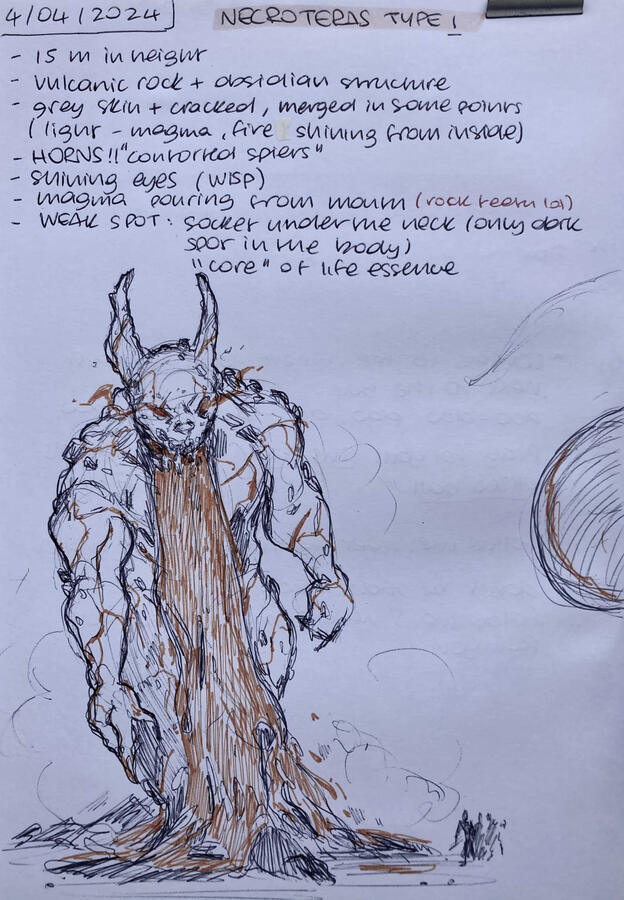 4/04/2024
NECROTERAS TYPE 1
- 15 m in height
- vulcanic rock + obsidian structure
- grey skin + cracked, merged in some points
(light - magma, fire shining from inside)
- HORNS!! "contorted spiers"
- shining eyes (WISP)
- magma pouring from mouth (rock teeth lol)
- WEAK SPOT: socket under the neck (only dark
spot in the body)
"core" of life essence